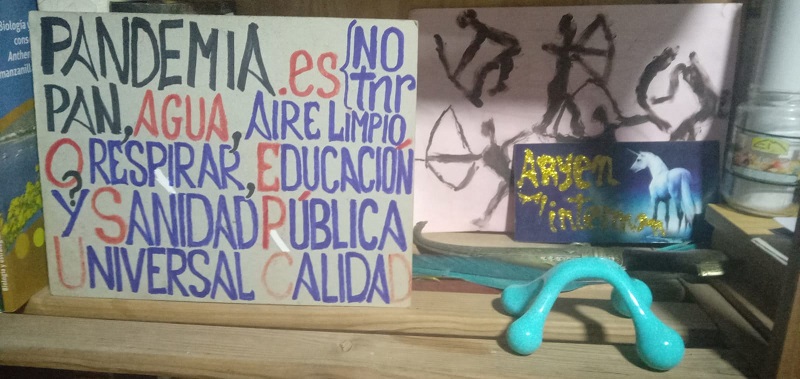 Biologia y
cons
Anther
manzanill
PANDEMIA.es{NO
tnr
PAN, AGUA, AIRE LIMPIO
O RESPIRAR, EDUCACIÓN
?
Y SANIDAD PÚBLICA
UNIVERSAL CALIDAD
Aryen